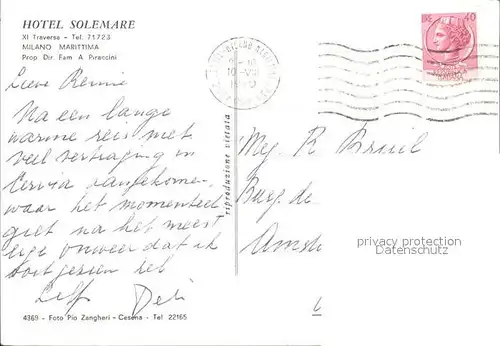 HOTEL SOLEMARE
XI Traversa - Tel. 71723
MILANO MARITTIMA
Prop Dir. Fam A Piraccini
Lieve Rennie
Na een lange
warme reis met
veel vertraging in
Cervia aangekomen
waar het momenteel
giet na het meest
ige onweer dat ik
ooit gezien heb
Liefs
riproduzione vietata
40
Mej. R
Burg. de
Amst
privacy protection
Datenschutz
4369 - Foto Pio Zangheri - Cesena - Tel 22165